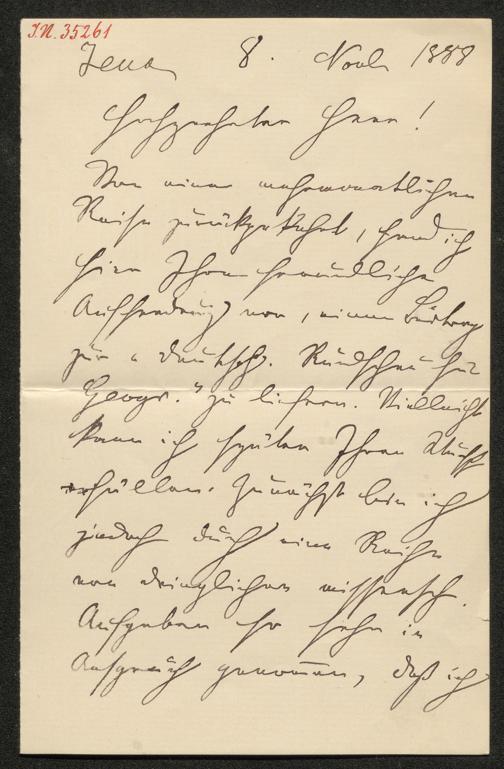 I.N. 35261
Jena 8. Novb 1888
Hochgeehrter Herr!
Von einer mehrmonatlichen
Reise zurückgekehrt, fand ich
hier Ihre freundliche
Aufforderung vor, einen Beitrag
zur "Deutsch. Rundschau für
Geogr." zu liefern. Vielleicht
kann ich später Ihren Wunsch
erfüllen. Zunächst bin ich
jedoch durch eine Reihe
von dringlichen wissensch.
Aufgaben so sehr in
Anspruch genom̅en, daß ich